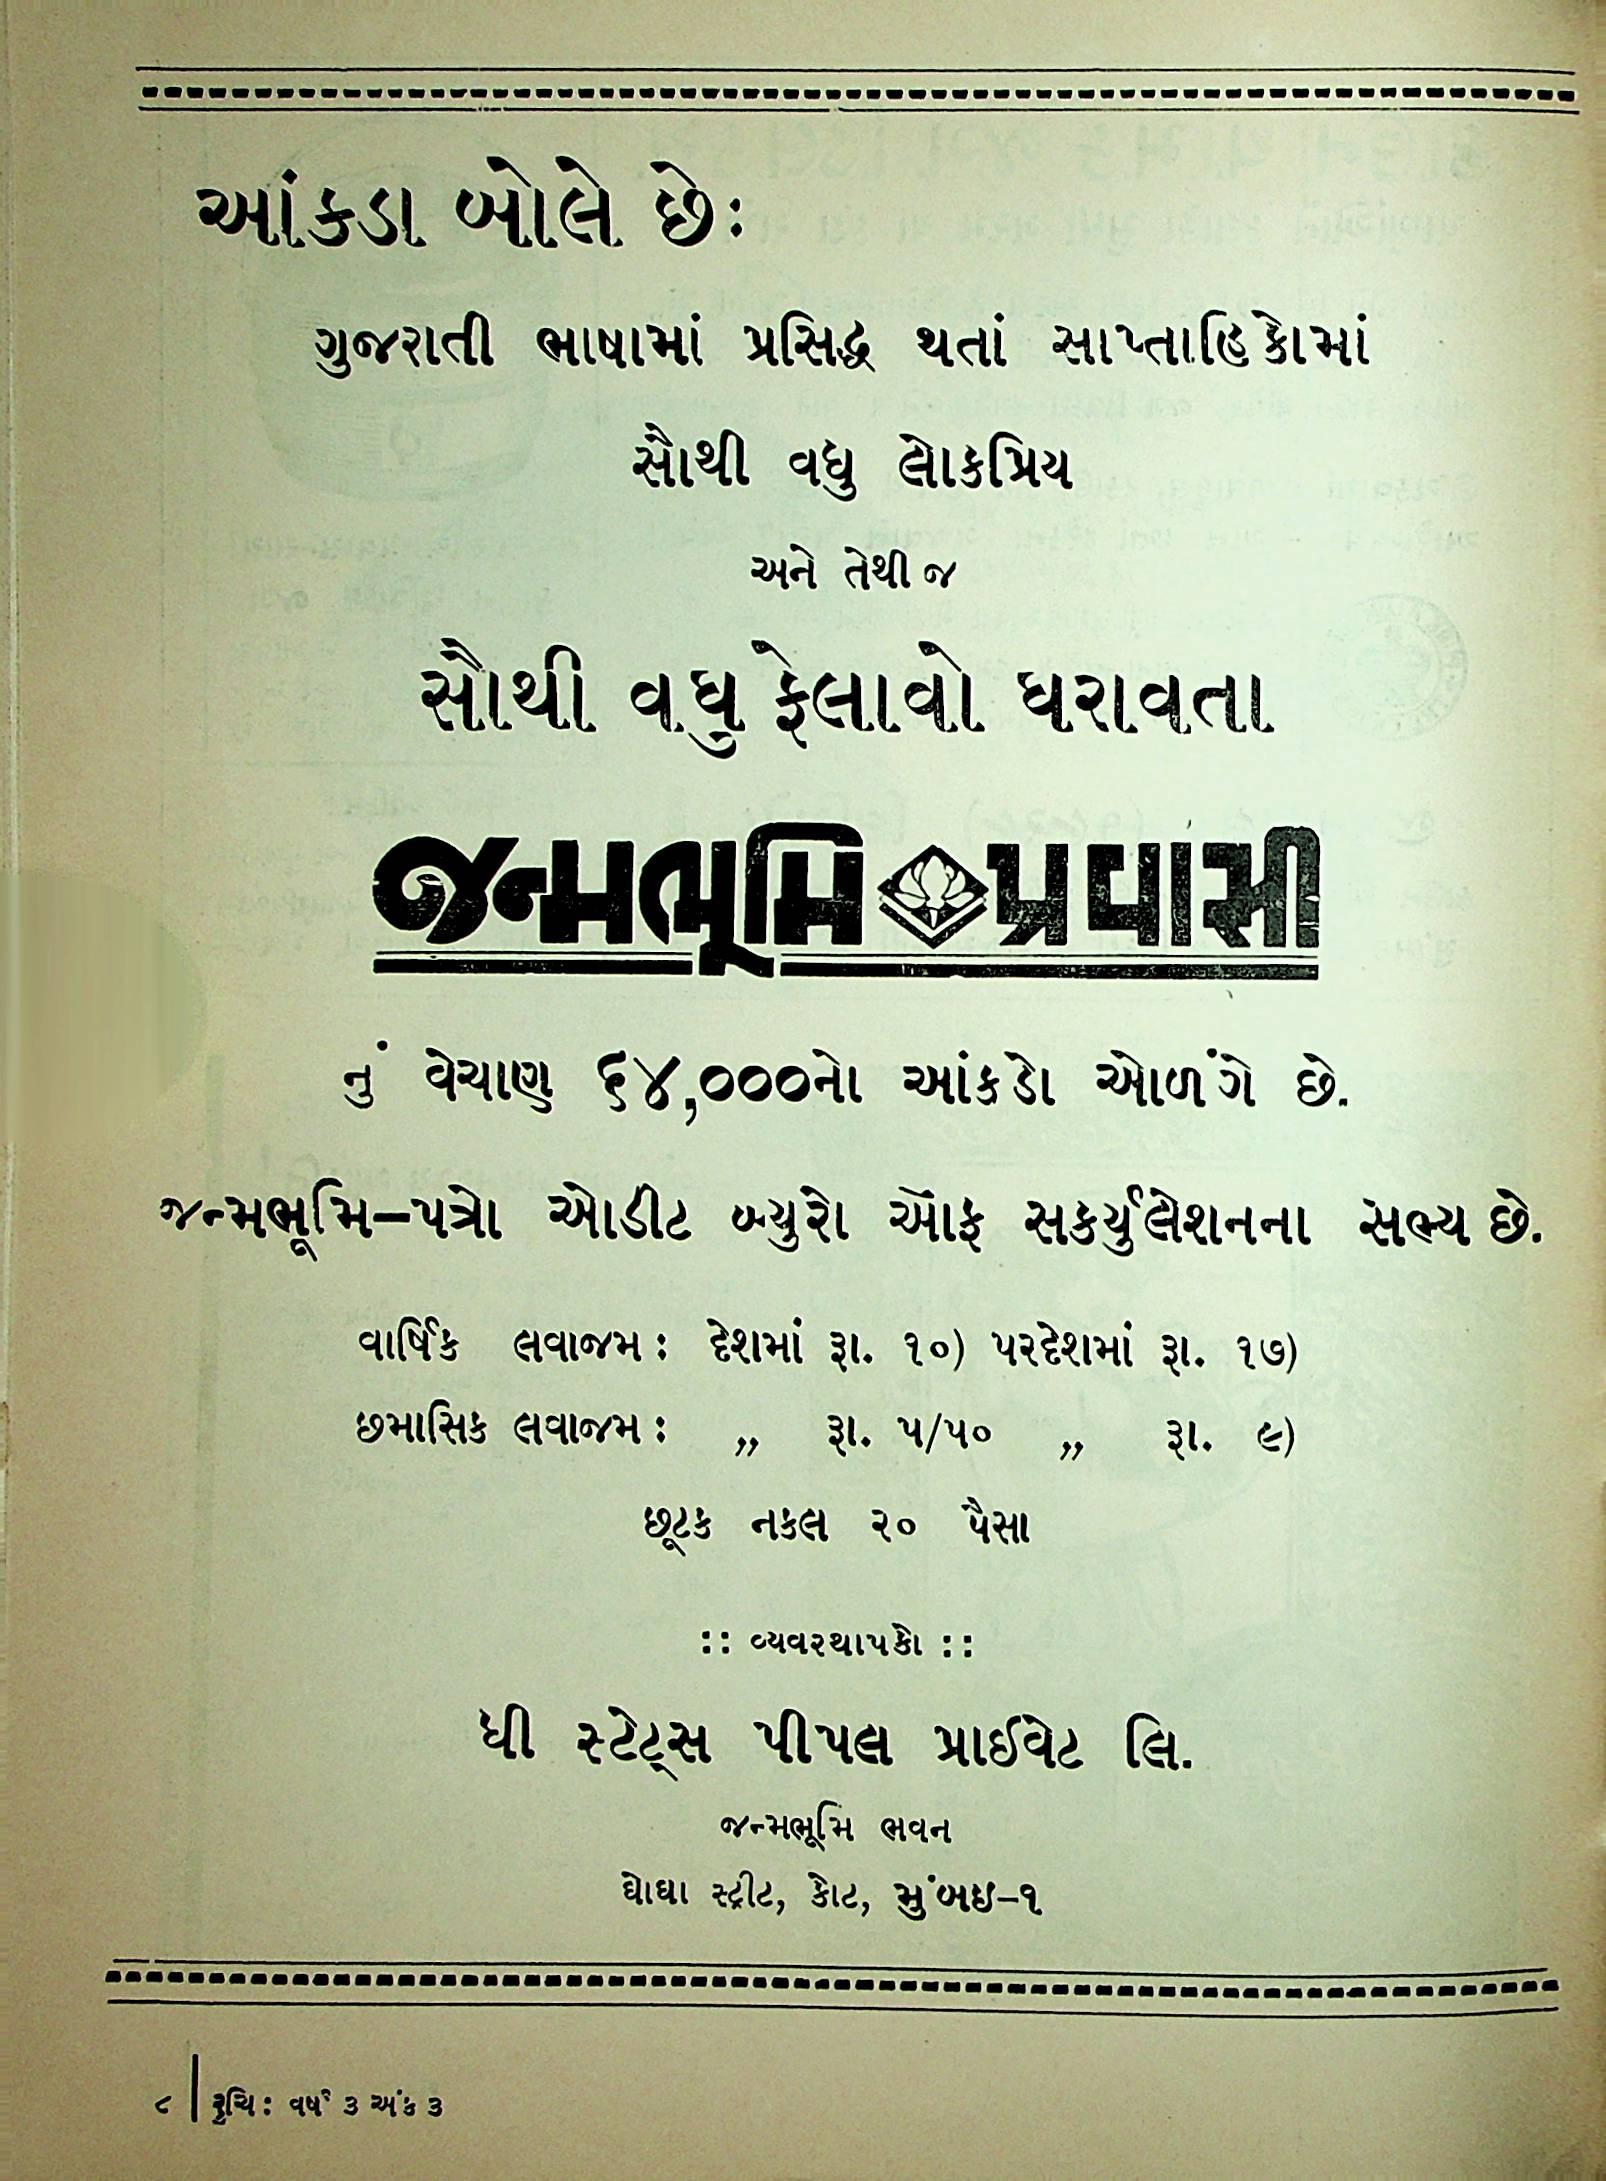 આંકડા બોલે છે:
ગુજરાતી ભાષામાં પ્રસિદ્ધ થતાં સાપ્તાહિકોમાં
સૌથી વધુ લોકપ્રિય
અને તેથી જ
સૌથી વધુ ફેલાવો ધરાવતા
જન્મભૂમિ પ્રવાસી
નું વેચાણ ૬૪,૦૦૦નો આંકડો ઓળંગે છે.
જન્મભૂમિ-પત્રો ઓડીટ બ્યુરો ઑફ સર્ક્યુલેશનના સભ્ય છે.
વાર્ષિક લવાજમ : દેશમાં રૂા. ૧૦) પરદેશમાં રૂા. ૧૭)
છમાસિક લવાજમ : ,, રૂા. ૫/૫૦ ,, રૂા. ૯)
છૂટક નકલ ૨૦ પૈસા
:: વ્યવસ્થાપકો ::
ધી સ્ટેટ્સ પીપલ પ્રાઈવેટ લિ.
જન્મભૂમિ ભવન
ઘોઘા સ્ટ્રીટ, કોટ, મુંબઇ-૧
૮ | રુચિ : વર્ષ ૩ અંક ૩